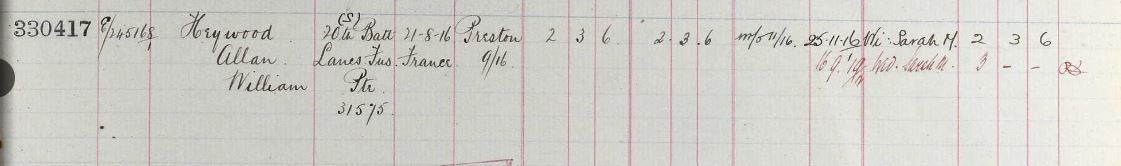 (S)
330417 E/245168/1 Heywood 20th Batt 21-8-16 Preston 2 3 6. 2. 3. 6 m/o 11/16. 25-11-16 Wi: Sarah M. 2 3 6
Allan Lancs Fus. France 9/16 16.9.'19 Wid. Sarah M. 3 - -
William Pte.
31575.